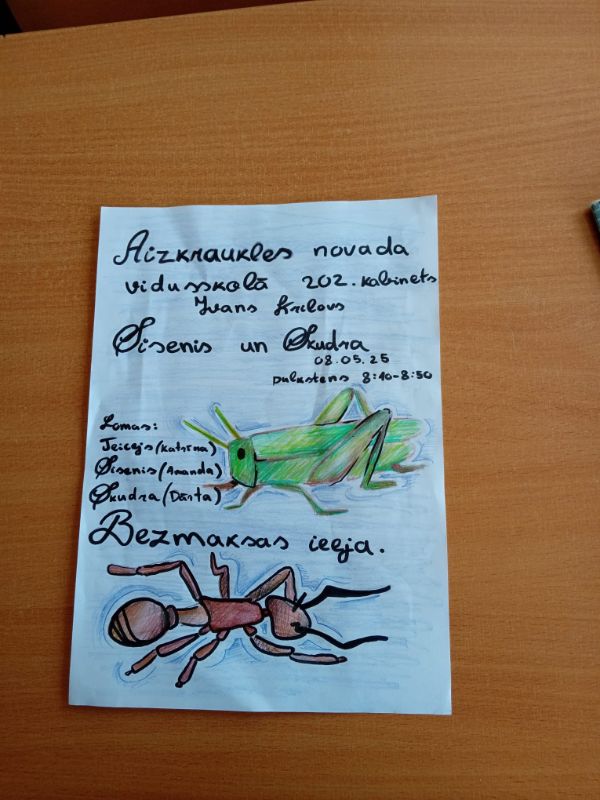 Aizkraukles novada
vidusskolā 202. kabinets
Ivans Krilovs
Sisenis un Skudra
08.05.25
pulkstens 8:10-8:50
Lomas:
Teicējs (Katrīna)
Sisenis (Amanda)
Skudra (Dārta)
Bezmaksas ieeja.